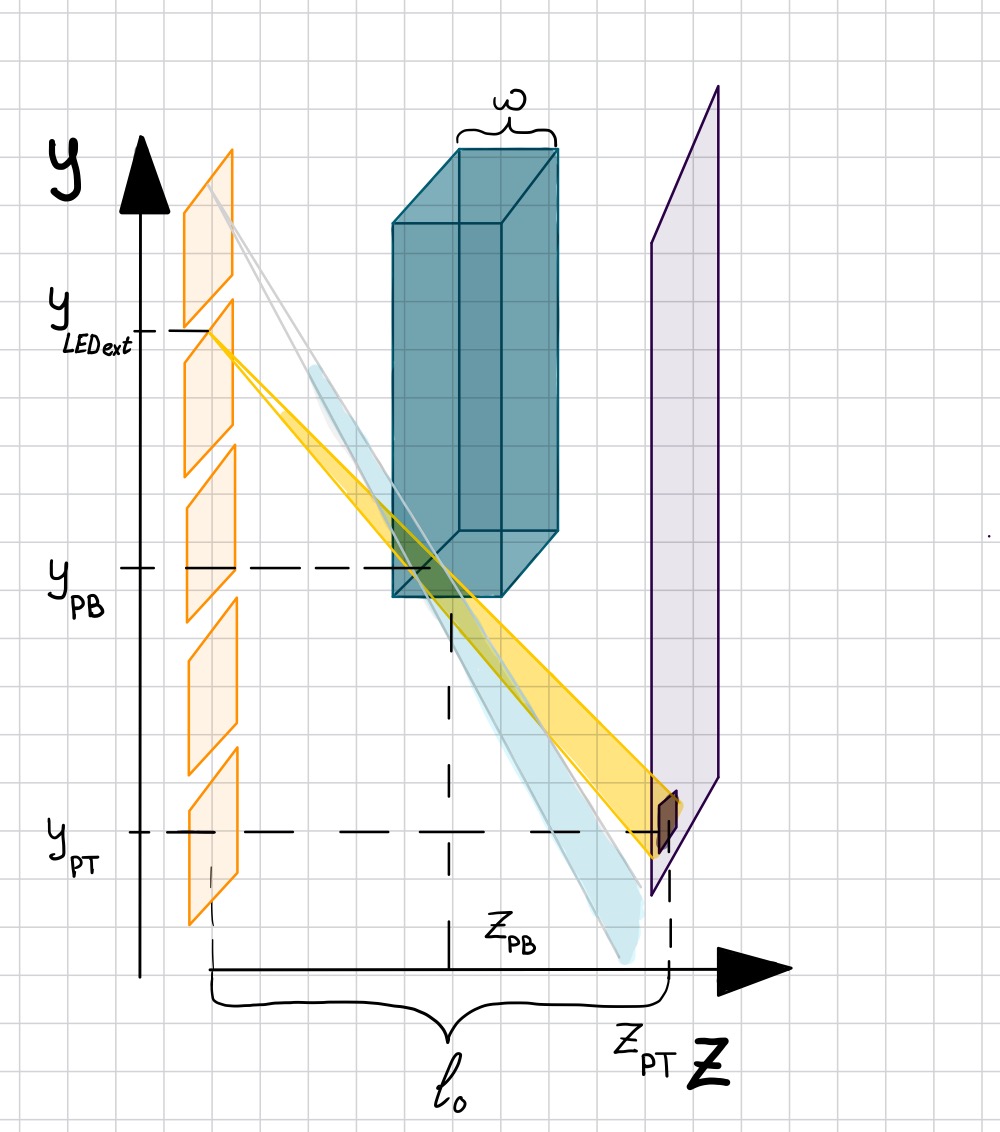 ω
y
y LEDext
y PB
y PT
z PB
z PT
z
l₀